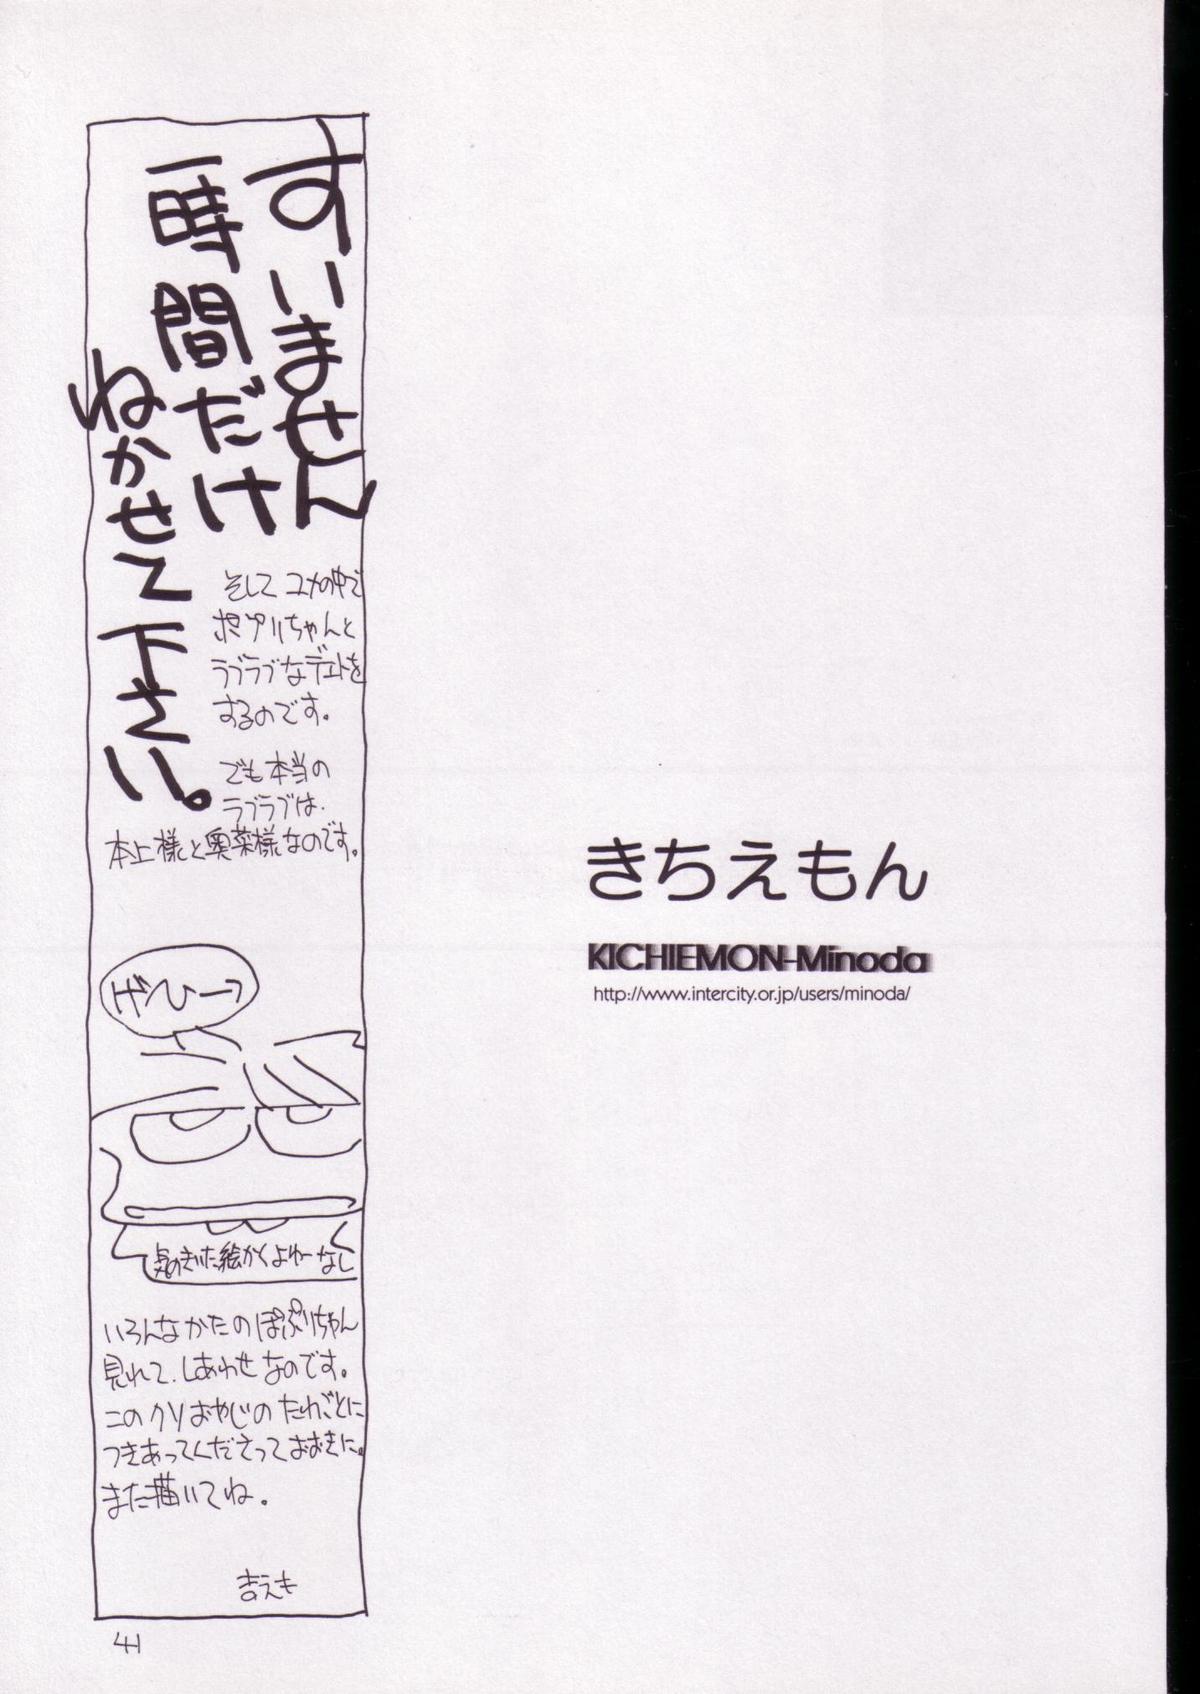 すいません
一時間だけ
ねかせて下さい。
そして ユメの中で
ポプリちゃんと
ラブラブなデェトを
するのです。
でも本当の
ラブラブは、
本上様と奥菜様なのです。
げひー
気のきいた絵かくよゆーなし
いろんなかたのぽぷりちゃん
見れて、しあわせなのです。
このクソおやじのたわごとに
つきあってくださっておおきに。
また描いてね。
吉えも
41
きちえもん
KICHIEMON-Minoda
http://www.intercity.or.jp/users/minoda/